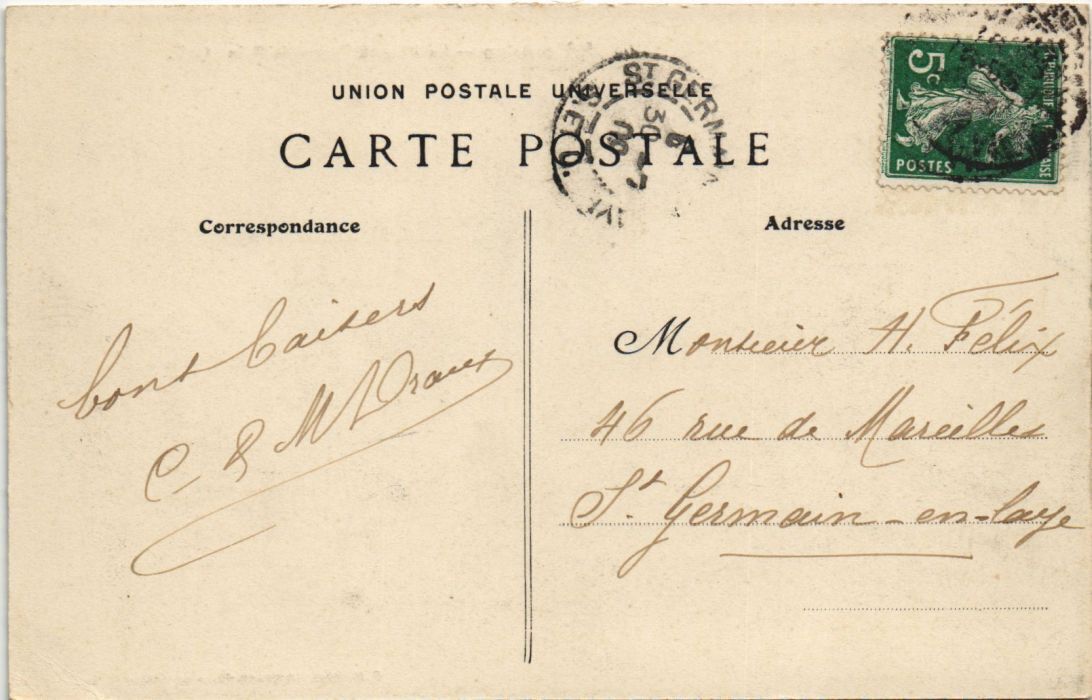 UNION POSTALE UNIVERSELLE
CARTE POSTALE
ST GERMAIN
30
S.ET O.
5c
POSTES
Correspondance
Adresse
bons baisers
C & M
Monsieur H. Félix
46 rue de Mareilles
St Germain-en-laye